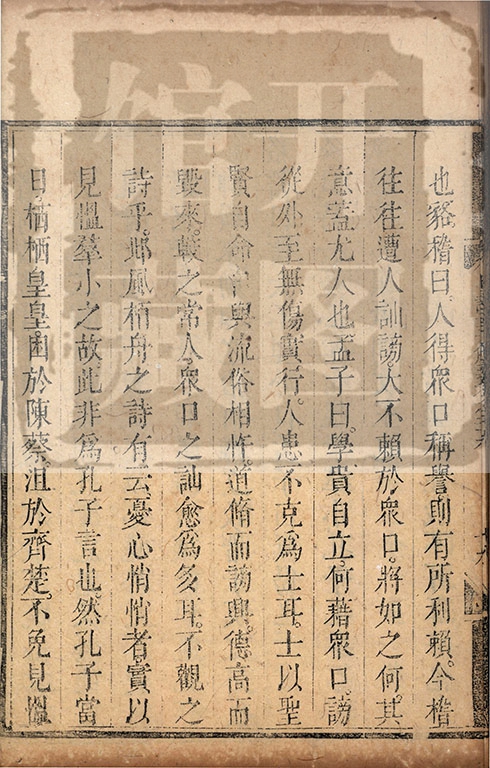 也貉稽曰人得衆口稱譽則有所利賴今稽
徃徃遭人訕謗大不賴於衆口將如之何其
意蓋尤人也孟子曰學貴自立何藉衆口謗
從外至無傷實行人患不克為士耳士以聖
賢自命常與流俗相忤道脩而謗興德高而
毀來較之常人衆口之訕愈為多耳不觀之
詩乎邶風栢舟之詩有云憂心悄悄者實以
見慍羣小之故此非為孔子言也然孔子當
日栖栖皇皇困於陳蔡沮於齊楚不免見慍